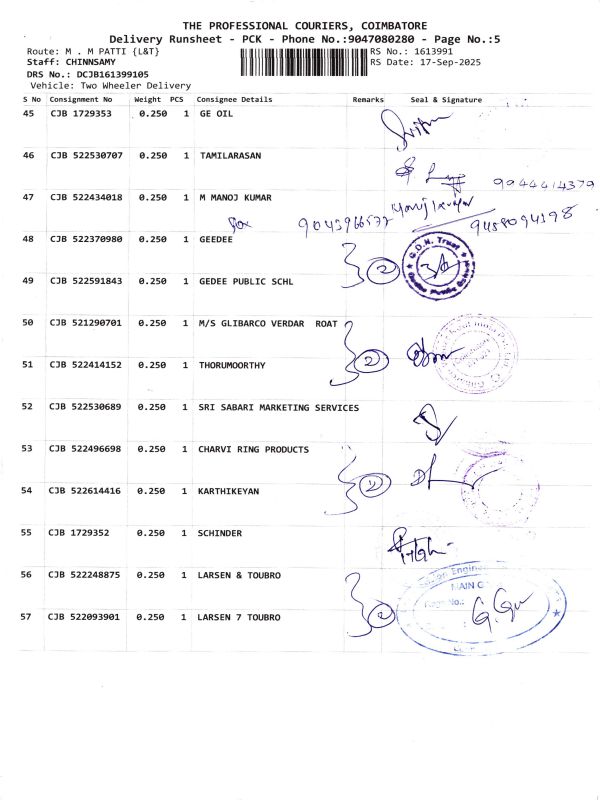 THE PROFESSIONAL COURIERS, COIMBATORE
Delivery Runsheet - PCK - Phone No.:9047080280 - Page No.:5
Route: M . M PATTI {L&T} RS No.: 1613991
Staff: CHINNSAMY RS Date: 17-Sep-2025
DRS No.: DCJB161399105
Vehicle: Two Wheeler Delivery
S No Consignment No Weight PCS Consignee Details Remarks Seal & Signature
45 CJB 1729353 0.250 1 GE OIL
46 CJB 522530707 0.250 1 TAMILARASAN
9944414379
47 CJB 522434018 0.250 1 M MANOJ KUMAR
Manoj kumar
9043966577 9458094598
48 CJB 522370980 0.250 1 GEEDEE
2
G.D.N. Trust
49 CJB 522591843 0.250 1 GEDEE PUBLIC SCHL
50 CJB 521290701 0.250 1 M/S GLIBARCO VERDAR ROAT
2
51 CJB 522414152 0.250 1 THORUMOORTHY
52 CJB 522530689 0.250 1 SRI SABARI MARKETING SERVICES
53 CJB 522496698 0.250 1 CHARVI RING PRODUCTS
2
54 CJB 522614416 0.250 1 KARTHIKEYAN
55 CJB 1729352 0.250 1 SCHINDER
56 CJB 522248875 0.250 1 LARSEN & TOUBRO
MAIN
2
57 CJB 522093901 0.250 1 LARSEN 7 TOUBRO